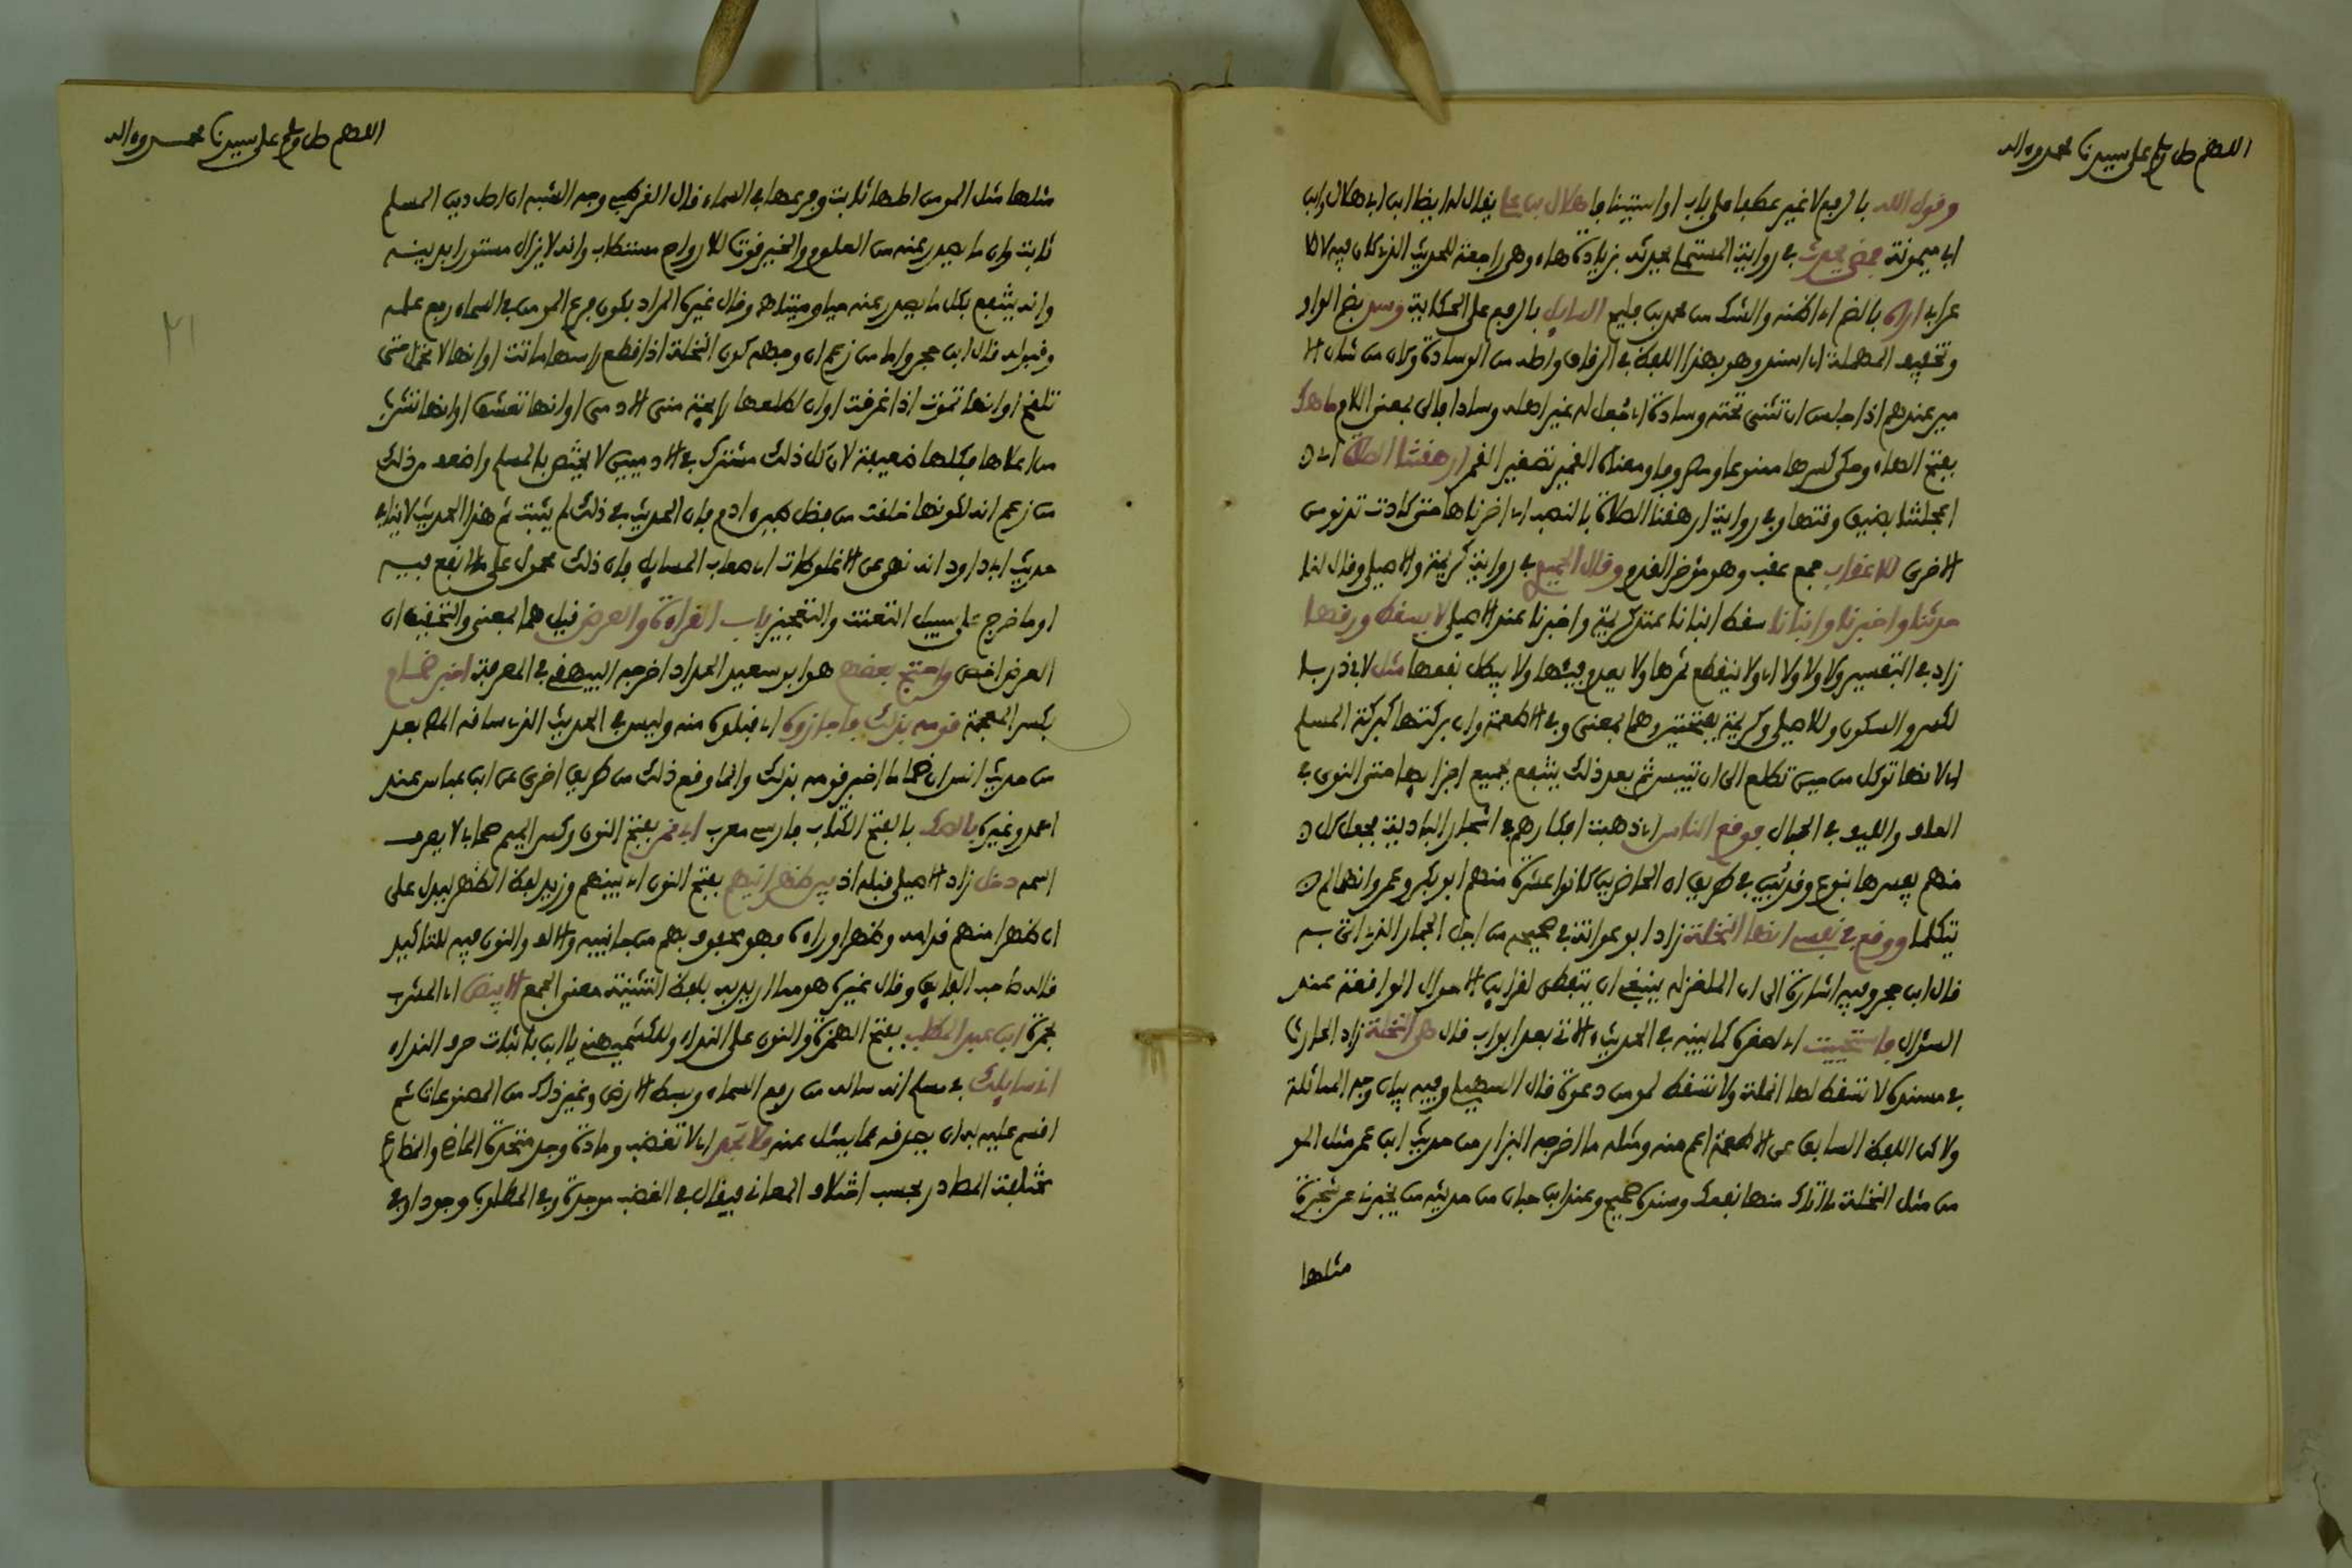 اللهم صل وسلم على سيدنا محمد وءاله
وقول الله بالرفع لا غير عطفا على باب او استينافا هلال بن على يقال له ايضا ابن ابى هلال وابن
ابى ميمونة فمضى يحدث فى رواية المستملى يحدثه بزيادة هاء وهى راجعة للحديث الذى كان فيه لا لا
عرابى اراه بالضم اى اظنه والشك من محمد بن فليح السايل بالرفع على الحكاية وسد بضم الواو
وتخفيف المهملة اى اسند وهو بهذا اللفظ فى الرقاق واصله من الوسادة وكان من شان الا
مير عندهم اذا جلس ان تثنى تحته وسادة اى جعل له غير اهله وسادا فالى بمعنى اللام ماهك
بفتح الهاء وحكى كسرها ممنوعا ومصروفا ومعناه القمير تصغير القمر ارهقتنا الصلاة اى ا
عجلتنا بضيق وقتها وفى رواية ارهقنا الصلاة بالنصب اى اخرناها حتى كادت تدنو من
الاخرى للاعقاب جمع عقب وهو مؤخر القدم وقال الحميدى فى رواية كريمة والاصيلى وقال لنا
حدثنا واخبرنا وانبانا سقط انبانا عند كريمة واخبرنا عند الاصيلى لا يسقط ورقها
زاد فى التفسير ولا ولا ولا اى ولا ينقطع ثمرها ولا يعدم فيئها ولا يبطل نفعها مثل لابى ذر بـ
لكسر والسكون وللاصيلى وكريمة بفتحتين وهما بمعنى وفى الاطعمة وان بركتها كبركة المسلم
اى لانها توكل من حين تطلع الى ان تيبس ثم بعد ذلك ينتفع بجميع اجزايها حتى النوى فى
العلف والليف فى الحبال فوقع الناس اى ذهبت افكارهم فى اشجار البادية فجعل كل ا
منهم يفسرها بنوع وقد تبين فى طريق ان الحاضرين كانوا عشرة منهم ابو بكر وعمر وانهما لم
يتكلما ووقع فى نفسى انها النخلة زاد ابو عوانة فى صحيحه من اجل الجمار الذى اتى به
قال ابن حجر وفيه اشارة الى ان الملغز له ينبغى ان يتفطن لقراين الاحوال الواقعة عند
السؤال فاستحييت اى لصغره كما بينه فى الحديث الاتى بعد ابواب قال هى النخلة زاد الحارث
فى مسنده لا تسقط لها انملة ولا تسقط لمومن دعوة قال السهيلى وفيه بيان وجه المماثلة
ولاكن اللفظ السابق عن الاطعمة اعم منه ومثله ما اخرجه البزار من حديث ابن عمر مثل المو
من مثل النخلة ما اتاك منها نفعك وسنده صحيح وعند ابن حبان من حديثه من يخبرنى عن شجرة
مثلها
اللهم صل وسلم على سيدنا محمد وءاله
٣١
مثلها مثل المومن اصلها ثابت وفرعها فى السماء قال القرطبى وجه الشبه ان اصل دين المسلم
ثابت وان ما يصدر عنه من العلوم والخير قوت للارواح مستطاب وانه لا يزال مستورا بدينه
وانه ينتفع بكل ما يصدر عنه حيا وميتا اهـ وقال غيره المراد بكون فرع المومن فى السماء رفع عمله
وقبوله قال ابن حجر واما من زعم ان وجهه كون النخلة اذا قطع راسها ماتت او انها لا تحمل حتى
تلقح او انها تموت اذا غرقت او ان لطلعها رايحة منى الادمى او انها تعشق او انها تشرب
من اعلاها فكلها ضعيفة لان كل ذلك مشترك فى الادميين لا يختص بالمسلم واضعف من ذلك
من زعم انه لكونها خلقت من فضل طين ءادم فان الحديث فى ذلك لم يثبت ثم هذا الحديث لا ينافى
حديث ابى داود انه نهى عن الاغلوطات اى صعاب المسايل فان ذلك محمول على ما لا نفع فيه
او ما خرج على سبيل التعنت والتعجيز باب القراءة والعرض قيل هما بمعنى والتحقيق ان
العرض اخص واحتج بعضهم هو ابو سعيد الحداد اخرجه البيهقى فى المعرفة اخبر ضمام
بكسر المعجمة قومه بذلك فاجازوه اى قبلوه منه وليس فى الحديث الذى ساقه المص بعد
من حديث انس ان ضماما اخبر قومه بذلك وانما وقع ذلك من طريق اخرى عن ابن عباس عند
احمد وغيره بالصك بالفتح الكتاب فارسى معرب ابى نمر بفتح النون وكسر الميم صحابى لا يعرف
اسمه دخل زاد الاصيلى قبله اذ بين ظهرانيهم بفتح النون اى بينهم وزيد لفظ الظهر ليدل على
ان ظهرا منهم قدامه وظهرا وراءه فهو محفوف بهم من جانبيه والالف والنون فيه للتاكيد
قاله صاحب الفايق وقال غيره هو مما اريد به بلفظ التثنية معنى الجمع الابيض اى المشرب
بحمرة ابن عبد المطلب بفتح الهمزة والنون على النداء وللكشميهنى يا ابن باثبات حرف النداء
انى سايلك فى مسلم انه ساله من رفع السماء وبسط الارض وغير ذلك من المصنوعات ثم
اقسم عليه به ان يصدقه عما يسئل عنه فلا تجد اى لا تغضب ومادة وجد متحدة الماضى والمضارع
مختلفة المصادر بحسب اختلاف المعانى فيقال فى الغضب موجدة وفى المطلوب وجودا وفى